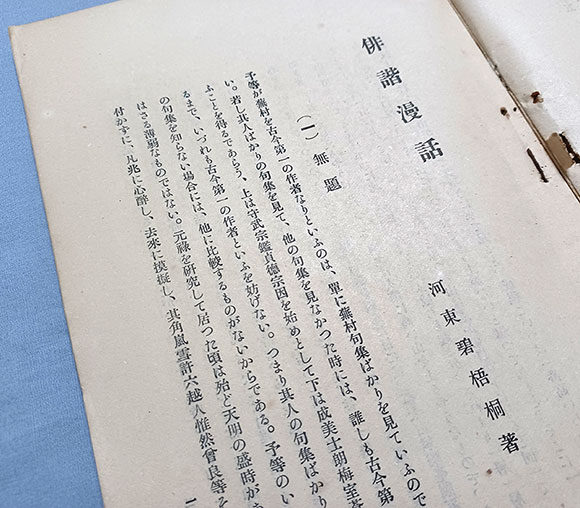 俳諧漫話
河東碧梧桐著
(一) 無題
予等が蕪村を古今第一の作者なりといふのは、單に蕪村句集ばかりを見ていふので
い。若し其人ばかりの句集を見て、他の句集を見なかつた時には、誰しも古今第
ふことを得るであらう、上は守武宗鑑貞德宗因を始めとして下は成美士朗梅室蒼
るまで、いづれも古今第一の作者といふを妨げない。つまり其人の句集ばかり
の句集を知らない場合には、他に比較するものがないからである。予等のい
はさる薄弱なものではない。元祿を研究して居つた頃は殆ど天明の盛時があ
付かずに、凡兆に心醉し、去來に摸擬し、其角嵐雪許六越人惟然曾良等を